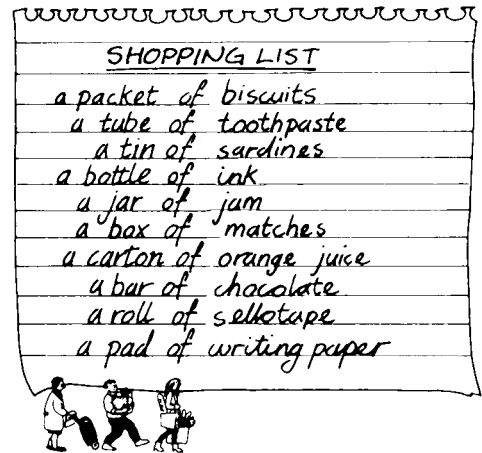 SHOPPING LIST
a packet of biscuits
a tube of toothpaste
a tin of sardines
a bottle of ink
a jar of jam
a box of matches
a carton of orange juice
a bar of chocolate
a roll of sellotape
a pad of writing paper